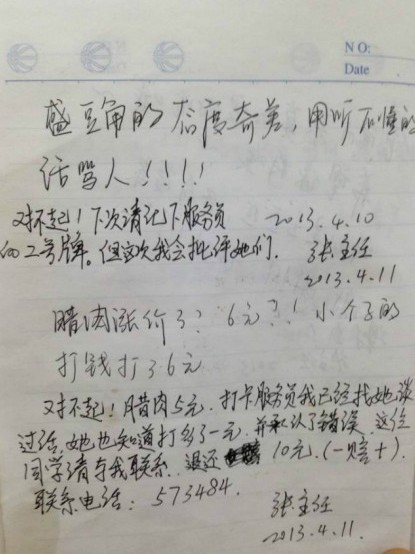 NO:
Date
盛豆角的态度奇差，用听不懂的
话骂人！！！！
2013.4.10
对不起！下次请记下服务员
的工号牌。但这次我会批评她们.
张主任
2013.4.11
腊肉涨价了？6元？！小个子的
打钱打了6元
对不起！腊肉5元. 打卡服务员我已经找她谈
过话, 她也知道打多了一元, 并承认了错误. 这位
同学请与我联系. 退还 10元. (一赔十).
联系电话: 573484.
张主任
2013.4.11.